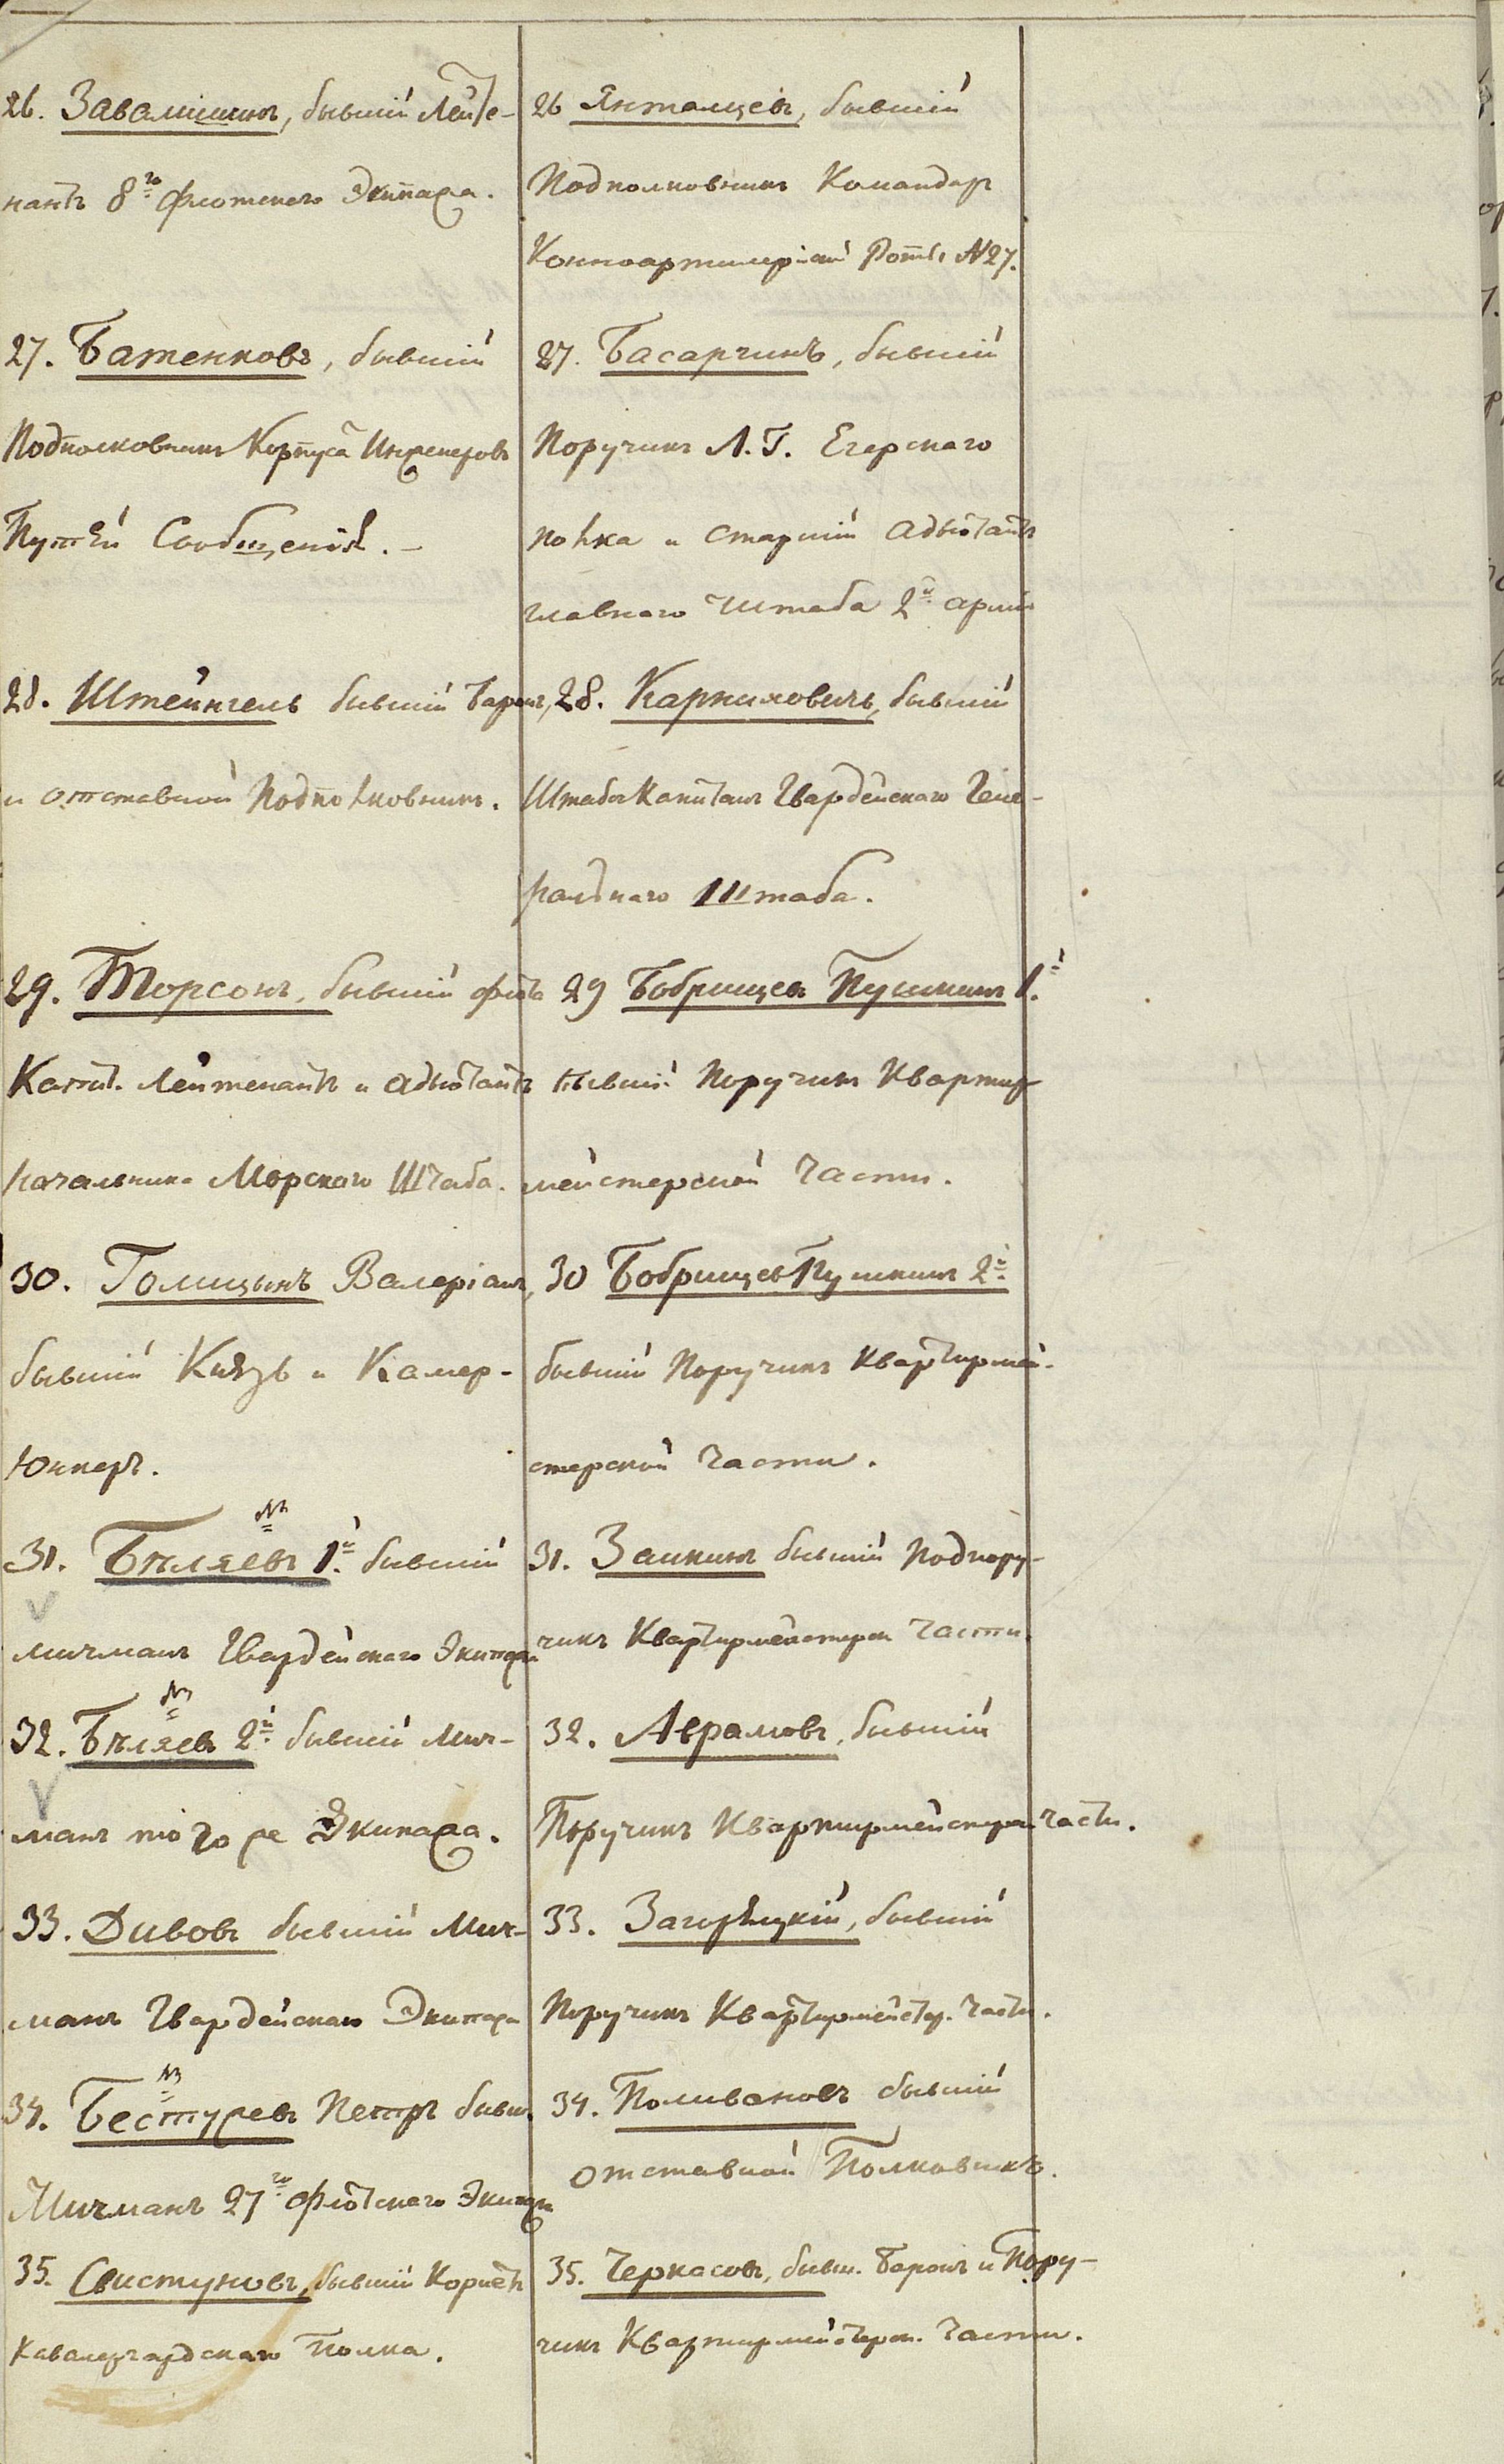 26. Завалишинъ, бывшій Лейте-
нантъ 8го Флотскаго Экипажа.
27. Батенковъ, бывшій
Подполковникъ Корпуса Инженеровъ
Путей Сообщенія. —
28. Штейнгель бывшій Баронъ,
и отставной Подполковникъ.
29. Торсонъ, бывшій флота
Капит. Лейтенантъ и Адъютантъ
Начальника Морскаго Штаба.
30. Голицынъ Валеріанъ,
бывшій Князь и Камер-
Юнкеръ.
31. Бѣляевъ 1й бывшій
мичманъ Гвардейскаго Экипажа
32. Бѣляевъ 2й бывшій Мич-
манъ того же Экипажа.
33. Дивовъ бывшій Мич-
манъ Гвардейскаго Экипажа
34. Бестужевъ Петръ бывш.
Мичманъ 27го Флотскаго Экипажа
35. Свистуновъ, бывшій Корнетъ
Кавалергардскаго Полка.
26 Янталцевъ, бывшій
Подполковникъ Командиръ
Конноартилерійской Роты N27.
27. Басаргинъ, бывшій
Поручикъ Л. Г. Егерскаго
полка и старшій Адъютантъ
главнаго Штаба 2й арміи
28. Карниловичъ, бывшій
Штабсъ Капитанъ Гвардейскаго Гене-
ральнаго Штаба.
29 Бобрищевъ Пушкинъ 1й
бывшій Поручикъ Квартир
мейстерской Части.
30 Бобрищевъ Пушкинъ 2й
бывшій Поручикъ Квартирмей-
стерской Части.
31. Заикинъ бывшій Подпору-
чикъ Квартирмейстерск Части.
32. Аврамовъ, бывшій
Поручикъ Квартирмейстерской части.
33. Загорѣцкій, бывшій
Поручикъ Квартирмейстер. Части.
34. Поливановъ бывшій
отставной Полковникъ.
35. Черкасовъ, бывш. Баронъ и Пору-
чикъ Квартирмейстерск. Части.